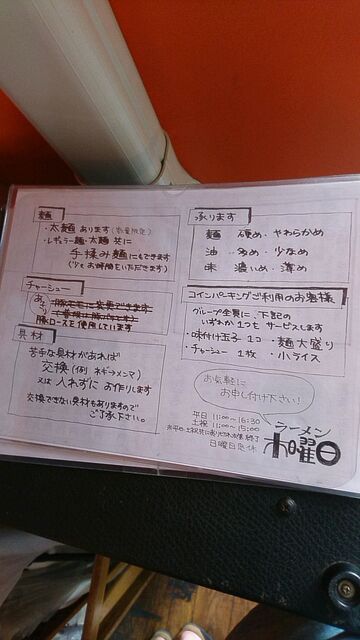 麺
・太麺あります(数量限定)
・レギュラー麺・太麺 共に
手揉み麺にもできます
(少々お時間をいただきます)
チャーシュー
豚ロースを使用しています
具材
苦手な具材があれば
交換(例 ネギ→メンマ)
又は 入れずに お作りします
交換できない具材もありますので
ご了承下さい。
承ります
麺 硬め・やわらかめ
油 多め・少なめ
味 濃いめ・薄め
コインパーキングご利用のお客様
グループ全員に、下記の
いずれか1つを サービスします
・味付け玉子 1コ ・麺大盛り
・チャーシュー 1枚 ・小ライス
お気軽に
お申し付け下さい!
平日 11:00~16:30
土祝 11:00~15:00
※平日・土祝共に売り切れ次第終了
日曜日定休
ラーメン
木曜日